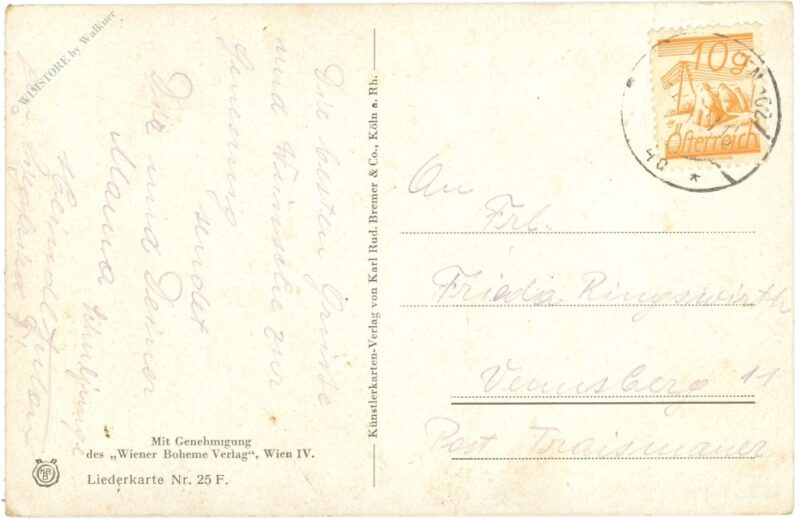 © WIMSTORE by Walkner
Die besten Grüsse
und Wünsche zur
Genesung
sendet
Dir und Deiner
Mama
Mit Genehmigung
des „Wiener Boheme Verlag", Wien IV.
Liederkarte Nr. 25 F.
KRB
Künstlerkarten-Verlag von Karl Rud. Bremer & Co., Köln a. Rh.
10g
Österreich
N 102
40 *
An
Frl.
Frieda Ringswirth
Venusberg 11
Post Traismauer